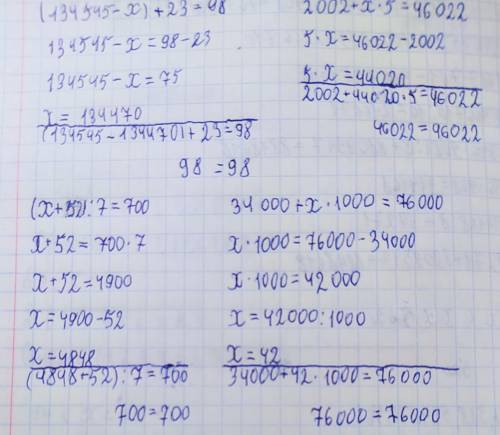 (134545-x)+23=98
134545-x=98-23
134545-x=75
x=134470
(134545-134470)+23=98
98=98
2002+x·5=46022
5·x=46022-2002
5·x=44020
2002+44020·5=46022
46022=46022
(x+52):7=700
x+52=700·7
x+52=4900
x=4900-52
x=4848
(4848+52):7=700
700=700
34000+x·1000=76000
x·1000=76000-34000
x·1000=42000
x=42000:1000
x=42
34000+42·1000=76000
76000=76000